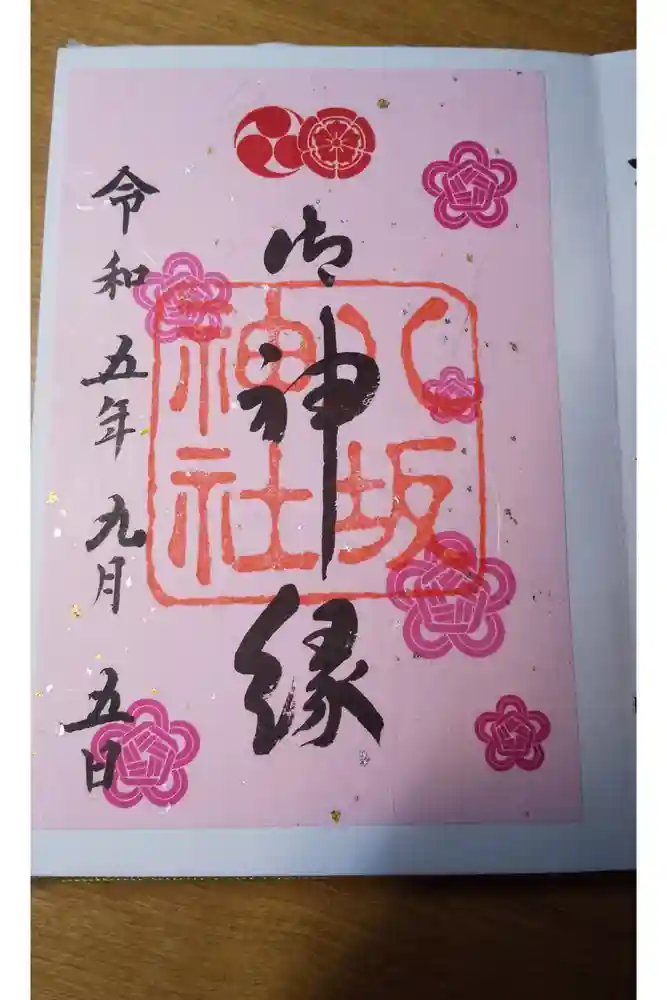 御神縁
八坂
神社
令和五年九月五日